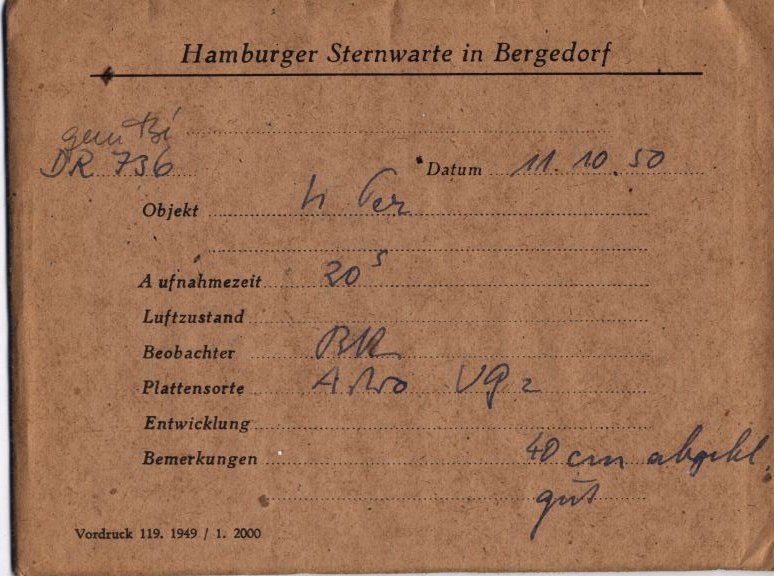 Hamburger Sternwarte in Bergedorf
DR 736
Datum 11. 10. 50
Objekt h Per
Aufnahmezeit 20 s
Luftzustand
Beobachter
Plattensorte Astro VG 2
Entwicklung
Bemerkungen 40 cm abgebl.
gut
Vordruck 119. 1949 / 1. 2000